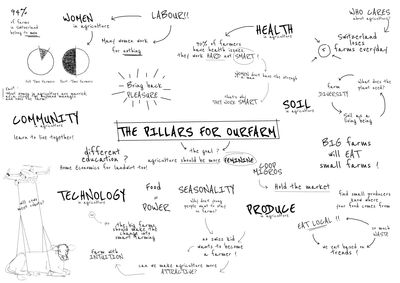 94%
of farms
in Switzerland
belong to men
WOMEN
in agriculture
LABOUR!!
Many women work
for nothing
HEALTH
in agriculture
50% of farmers
have health issues,
they work HARD not SMART!
WOMEN don't have the strength
that's why
THEY WORK SMART!
WHO CARES
about agriculture?
Switzerland
loses
farms everyday!
Full Time Farmers
Part Time Farmers
Bring back
PLEASURE
farm
DIVERSITY
What does the
plant need?
Soil is a
living being
SOIL
in agriculture
COMMUNITY
in agriculture
learn to live together!
THE PILLARS FOR OURFARM
the goal?
agriculture should be more FEMININE
different
education?
Home Economics for landwirt too!
BIG farms
will EAT
small farms!
COOP
MIGROS
Hold the market
TECHNOLOGY
in agriculture
Food
=
POWER
SEASONALITY
Why don't young
people want to stay
on farms?
PRODUCE
in agriculture
find small producers
know where
your food comes from
EAT LOCAL!!
so much
WASTE
we eat based on
trends!
the big farms
should make the
change into
smart farming
farm with
INTUITION
no swiss kid
wants to become
a farmer!
can we make agriculture more
ATTRACTIVE?